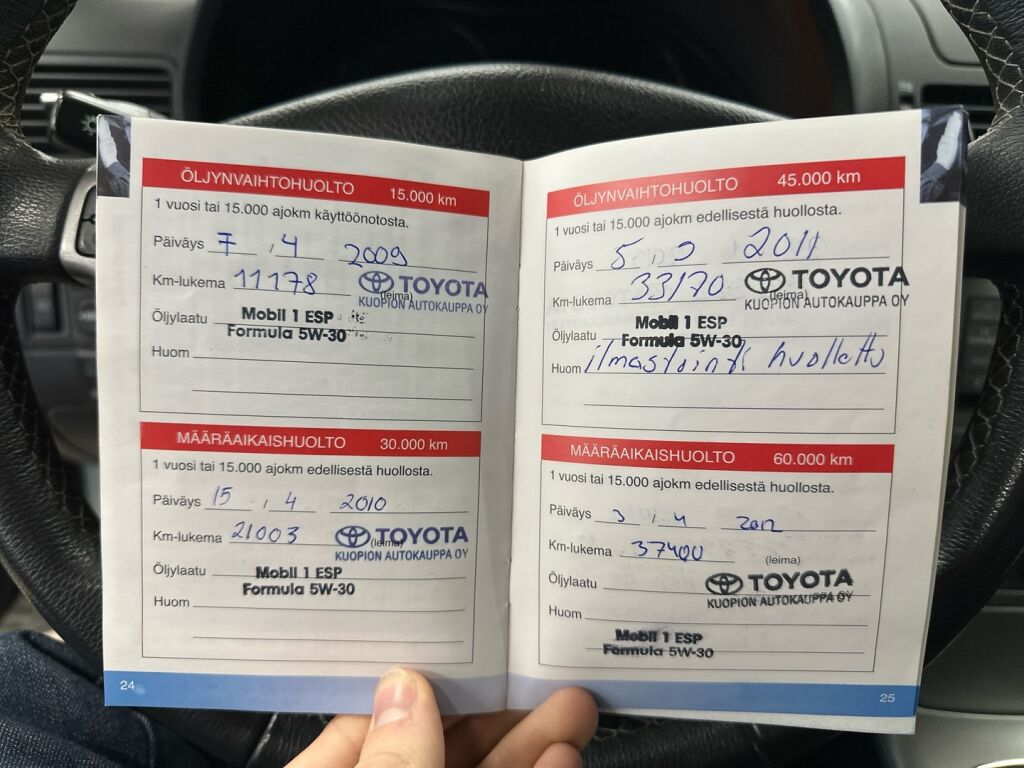 ÖLJYNVAIHTOHUOLTO 15.000 km
1 vuosi tai 15.000 ajokm käyttöönotosta.
Päiväys 7 , 4 2009
Km-lukema 11178
(leima)
TOYOTA
KUOPION AUTOKAUPPA OY
Öljylaatu Mobil 1 ESP
Formula 5W-30
Huom
MÄÄRÄAIKAISHUOLTO 30.000 km
1 vuosi tai 15.000 ajokm edellisestä huollosta.
Päiväys 15 , 4 2010
Km-lukema 21003
(leima)
TOYOTA
KUOPION AUTOKAUPPA OY
Öljylaatu Mobil 1 ESP
Formula 5W-30
Huom
24
ÖLJYNVAIHTOHUOLTO 45.000 km
1 vuosi tai 15.000 ajokm edellisestä huollosta.
Päiväys 5 , 2011
Km-lukema 33170
(leima)
TOYOTA
KUOPION AUTOKAUPPA OY
Öljylaatu Mobil 1 ESP
Formula 5W-30
Huom ilmastointi huollettu
MÄÄRÄAIKAISHUOLTO 60.000 km
1 vuosi tai 15.000 ajokm edellisestä huollosta.
Päiväys 3 , 4 2012
Km-lukema 37400
(leima)
Öljylaatu
TOYOTA
KUOPION AUTOKAUPPA OY
Huom
Mobil 1 ESP
Formula 5W-30
25